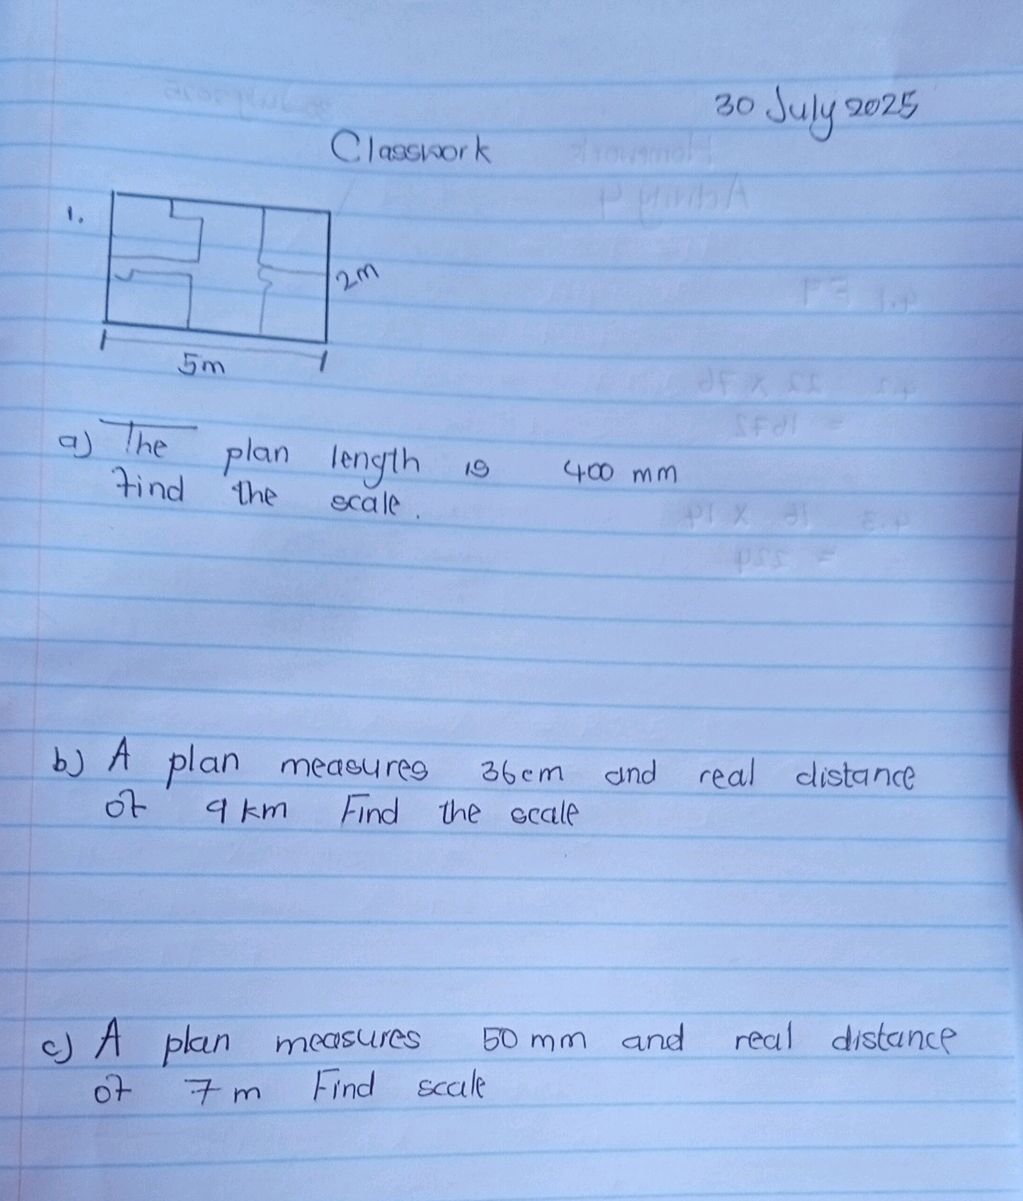 30 July 2025
Classwork
1.
2m
5m
a) The plan length is 400 mm
Find the scale.
b) A plan measures 36cm and real distance
of 9 km Find the scale
c) A plan measures 50 mm and real distance
of 7 m Find scale